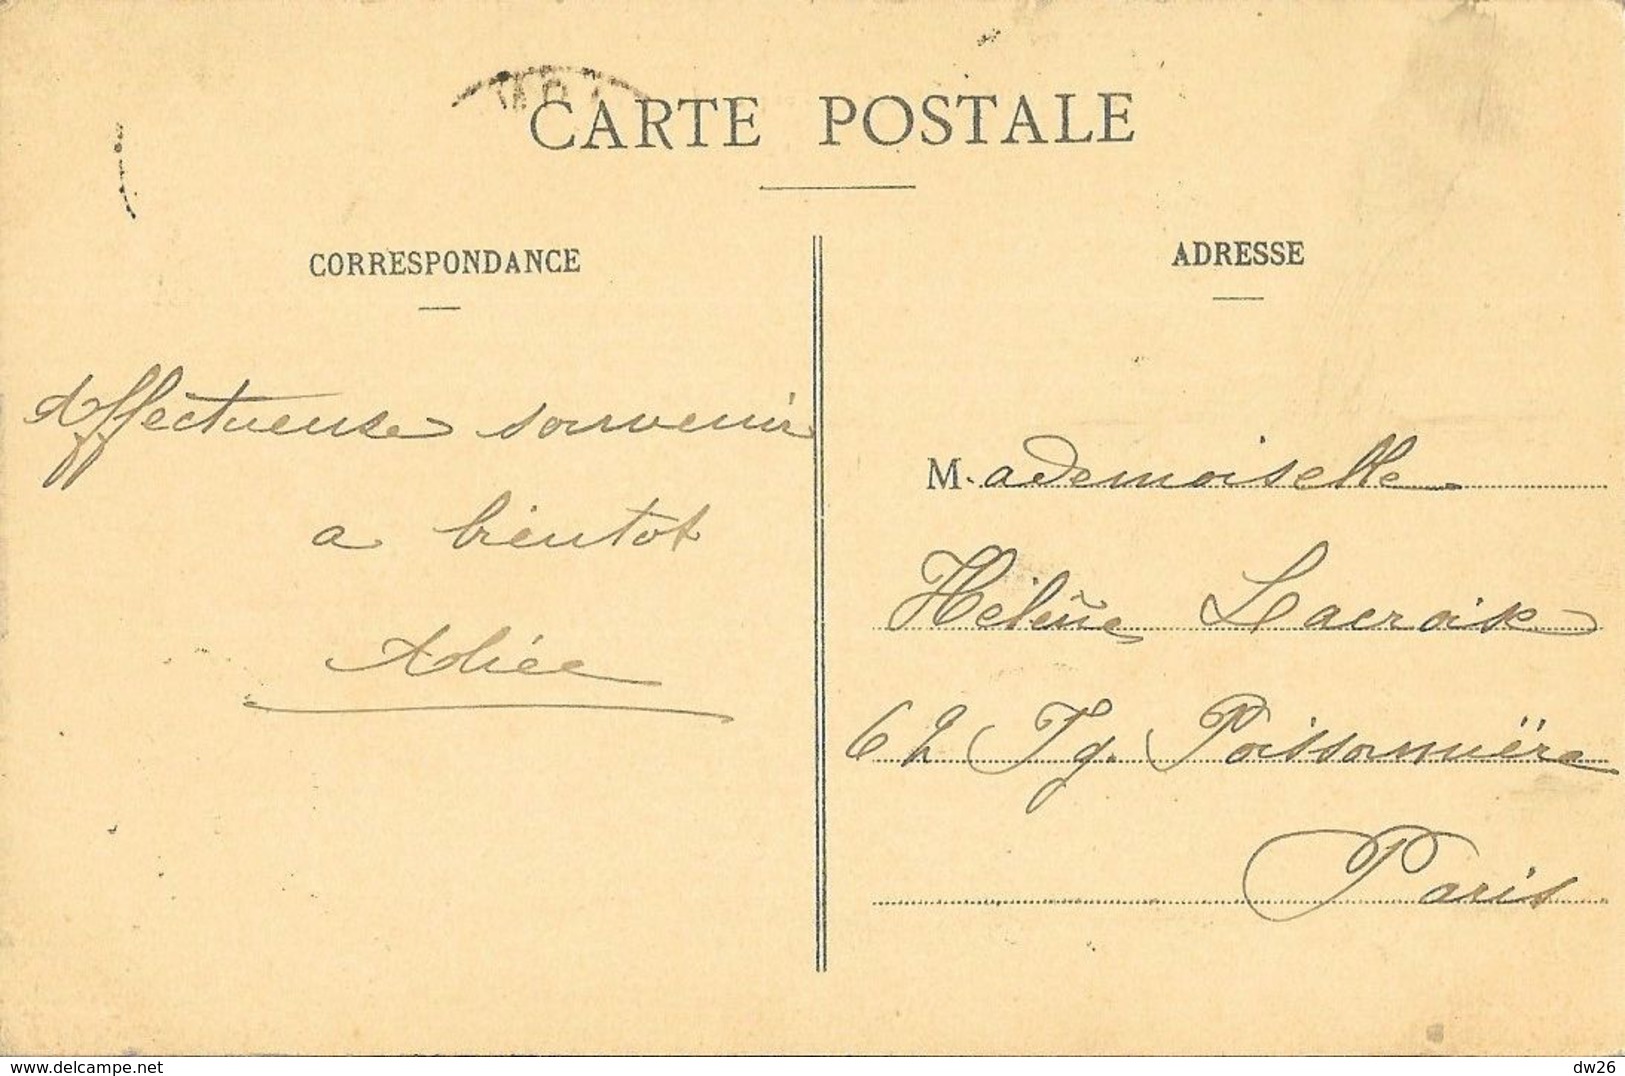 CARTE POSTALE
CORRESPONDANCE
ADRESSE
Affectueuse souvenir
a bientot
Mademoiselle
Hélène Lacroix
62 Fg. Poissonnière
Paris
delcampe.net
dw26